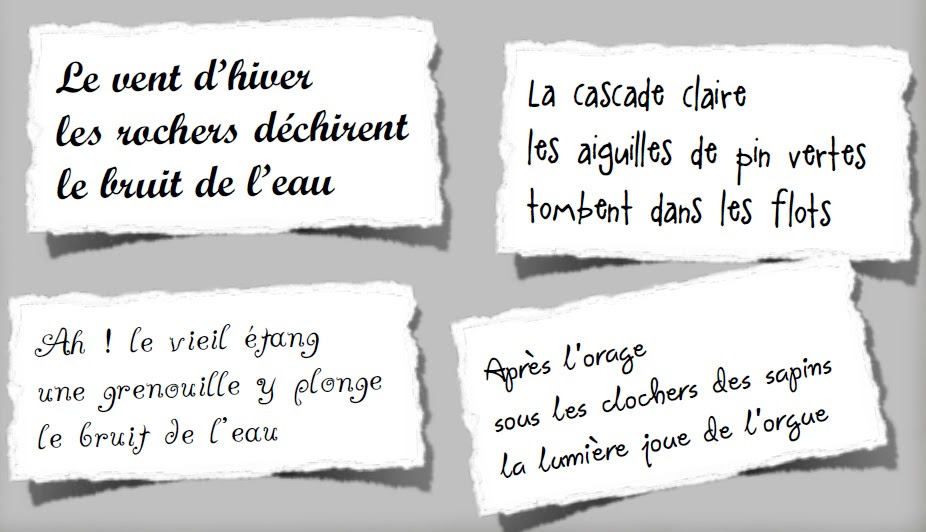 Le vent d'hiver
les rochers déchirent
le bruit de l'eau
La cascade claire
les aiguilles de pin vertes
tombent dans les flots
Ah ! le vieil étang
une grenouille y plonge
le bruit de l'eau
Après l'orage
sous les clochers des sapins
la lumière joue de l'orgue